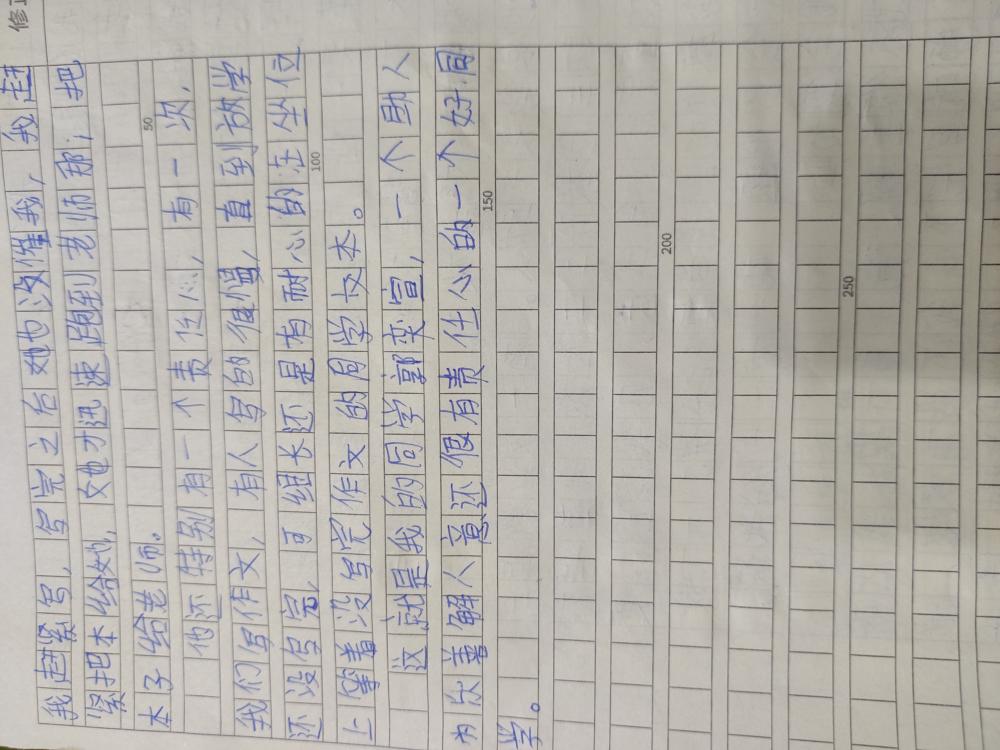 修
我赶紧写，写完之后她也没催我，我赶
紧把本给她，她才迅速跑到老师那，把
本子给老师。
50
他还特别有一个责任心，有一次，
我们写作文，有人写的很慢，直到放学
还没写完，可组长还是有耐心的在坐位
100
上等着没写完作文的同学收本。
这就是我的同学郭奕宣，一个助人
为欢善解人意还很有责任心的一个好同
150
学。
200
250